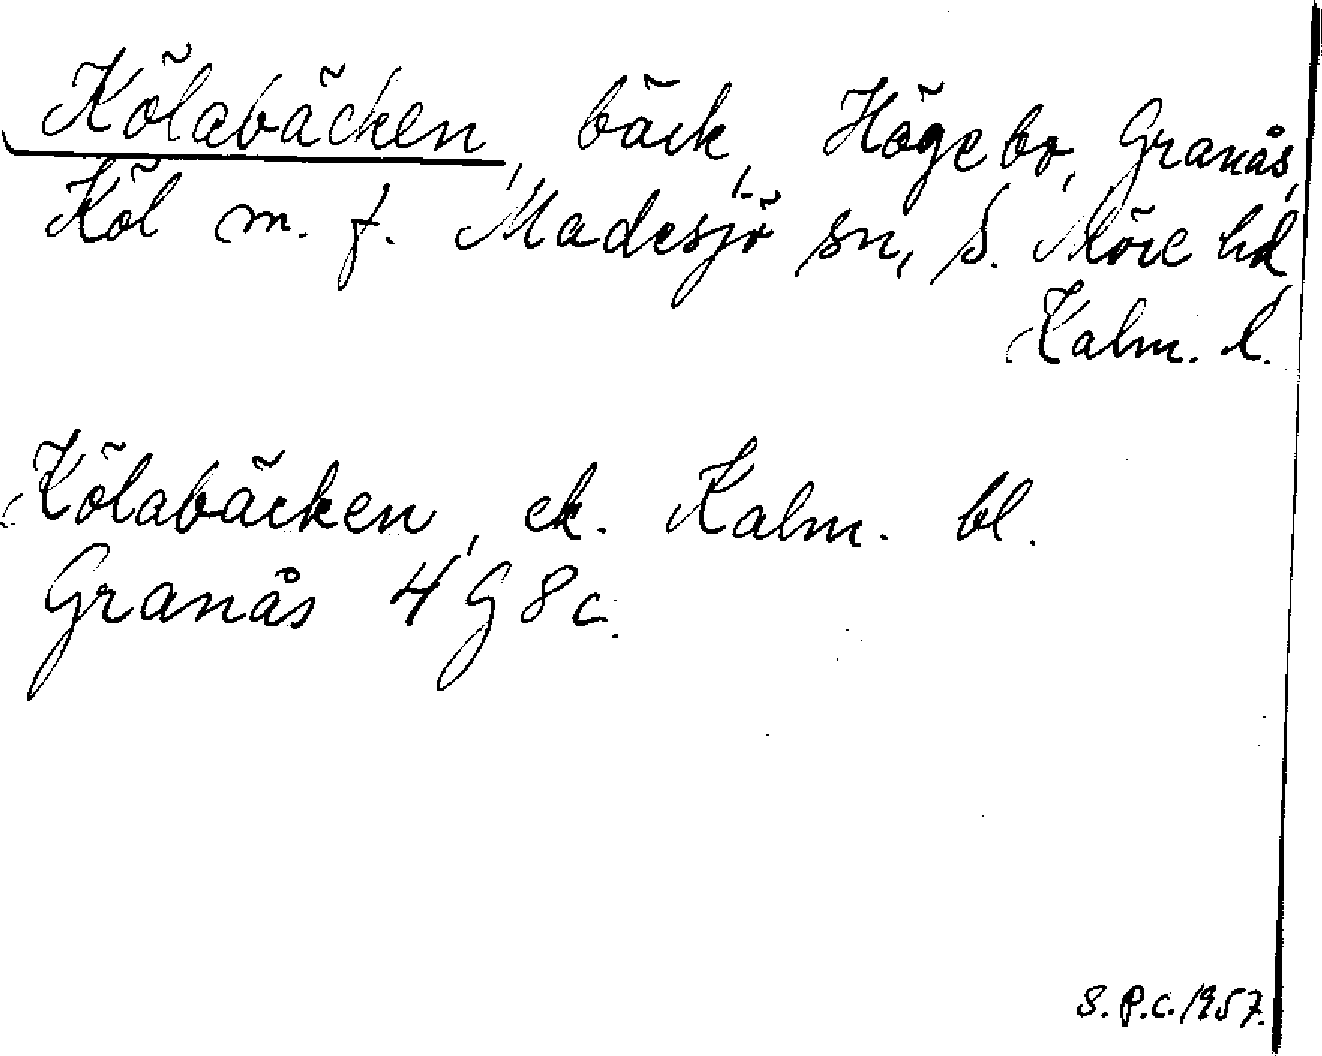 Kölabäcken, bäck, Högebo, Granås,
Köl m. f. Madesjö sn, S. Möre hd
Kalm. l.
Kölabäcken, ek. Kalm. bl.
Granås 4 G 8 c.
S.P.C. 1957.